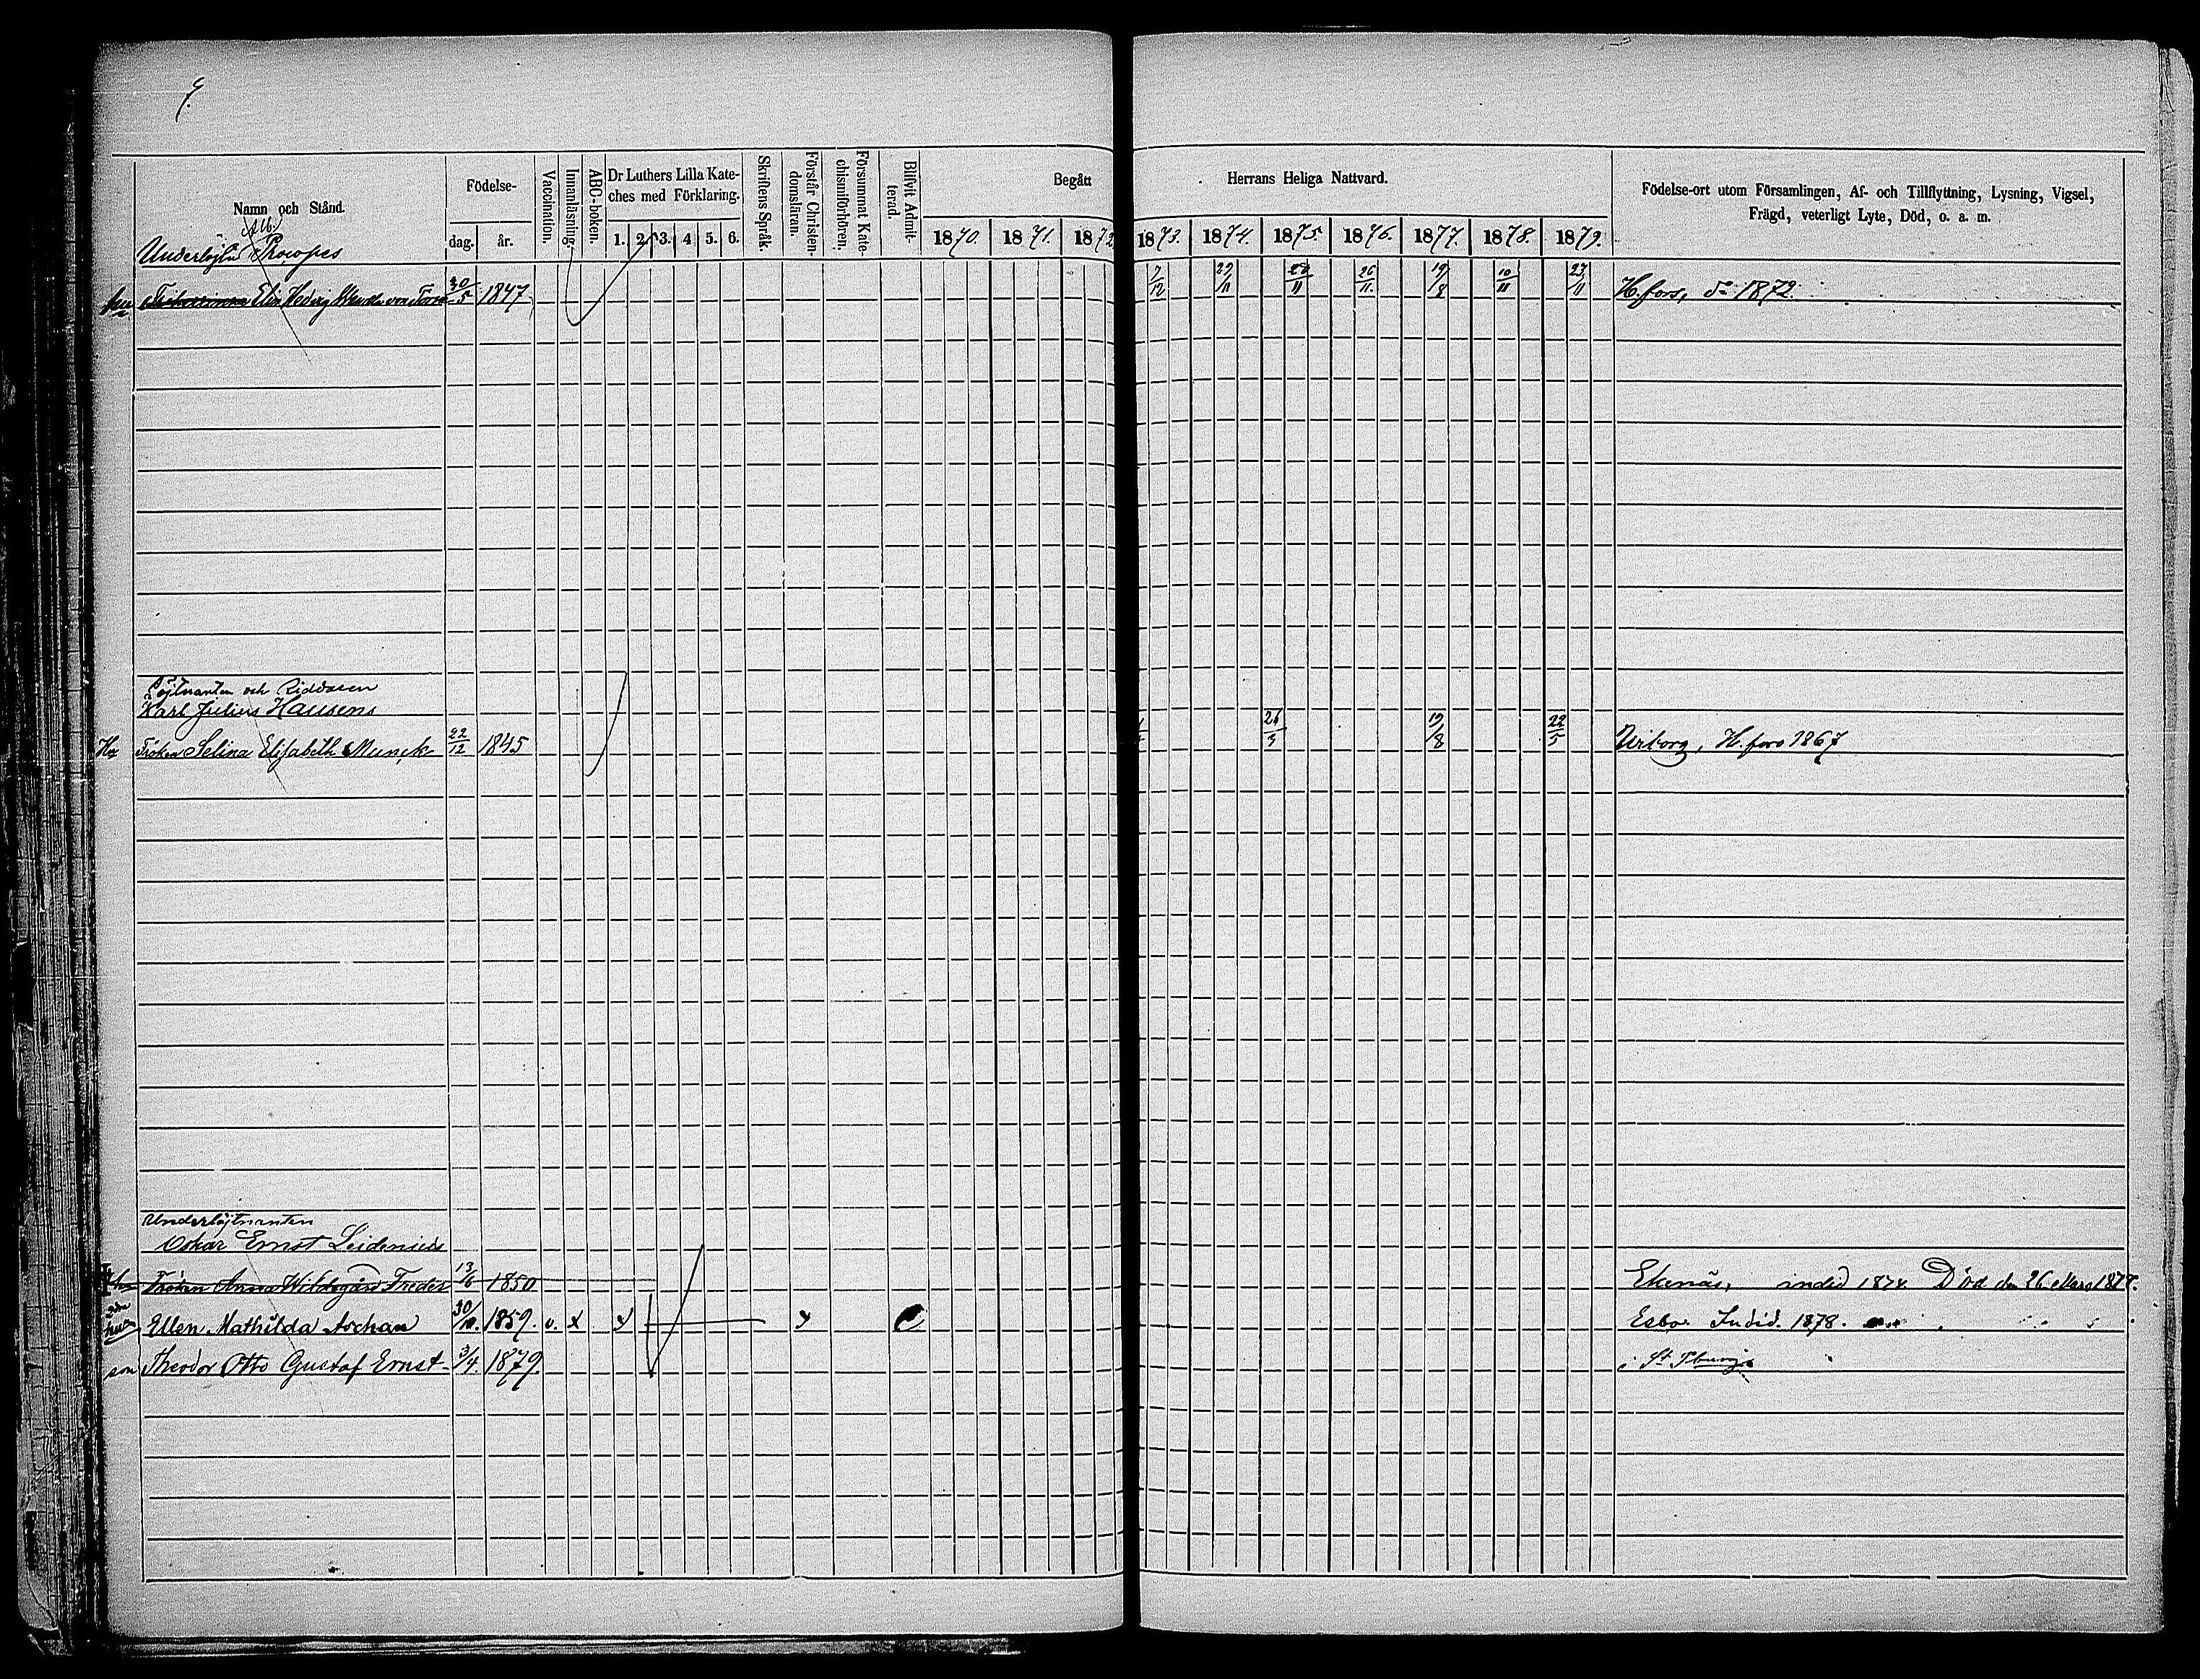 7.
Namn och Stånd.
Födelse-
dag.
år.
Vaccination.
Innanläsning.
ABC-boken.
Dr Luthers Lilla Kate-
ches med Förklaring.
1. 2. 3. 4 5. 6.
Skriftens Språk.
Förstår Christen-
domsläran.
Försummat Kate-
chismiförhören.
Blifvit Admit-
terad.
Begått
Herrans Heliga Nattvard.
1870. 1871. 1872 1873. 1874. 1875. 1876. 1877. 1878. 1879.
Födelse-ort utom Församlingen, Af- och Tillflyttning, Lysning, Vigsel,
Frägd, veterligt Lyte, Död, o. a. m.
Alb.
Underlöjtn Procopes
hu Elin Hedvig von 30/5 1847 7/12 29/11 26/11 19/8 10/11 23/11 H.fors, do 1872.
Löjtnanten och Riddaren
Karl Julius Hausens
Hu Fröken Selina Elisabeth Munck 22/12 1845 19/8 22/5 Wiborg, H.fors 1867
Underlöjtnanten
Oskar Ernst Leidenius
Fröken Anna Hildegard 13/6 1850 Ekenäs, indid 1874. Död den 26 Mars 1877.
Ellen Mathilda Aschan 30/10. 1859. v. x x x Esbo. Indid. 1878.
son Theodor Otto Gustaf Ernst 3/4. 1879. i St Pburg